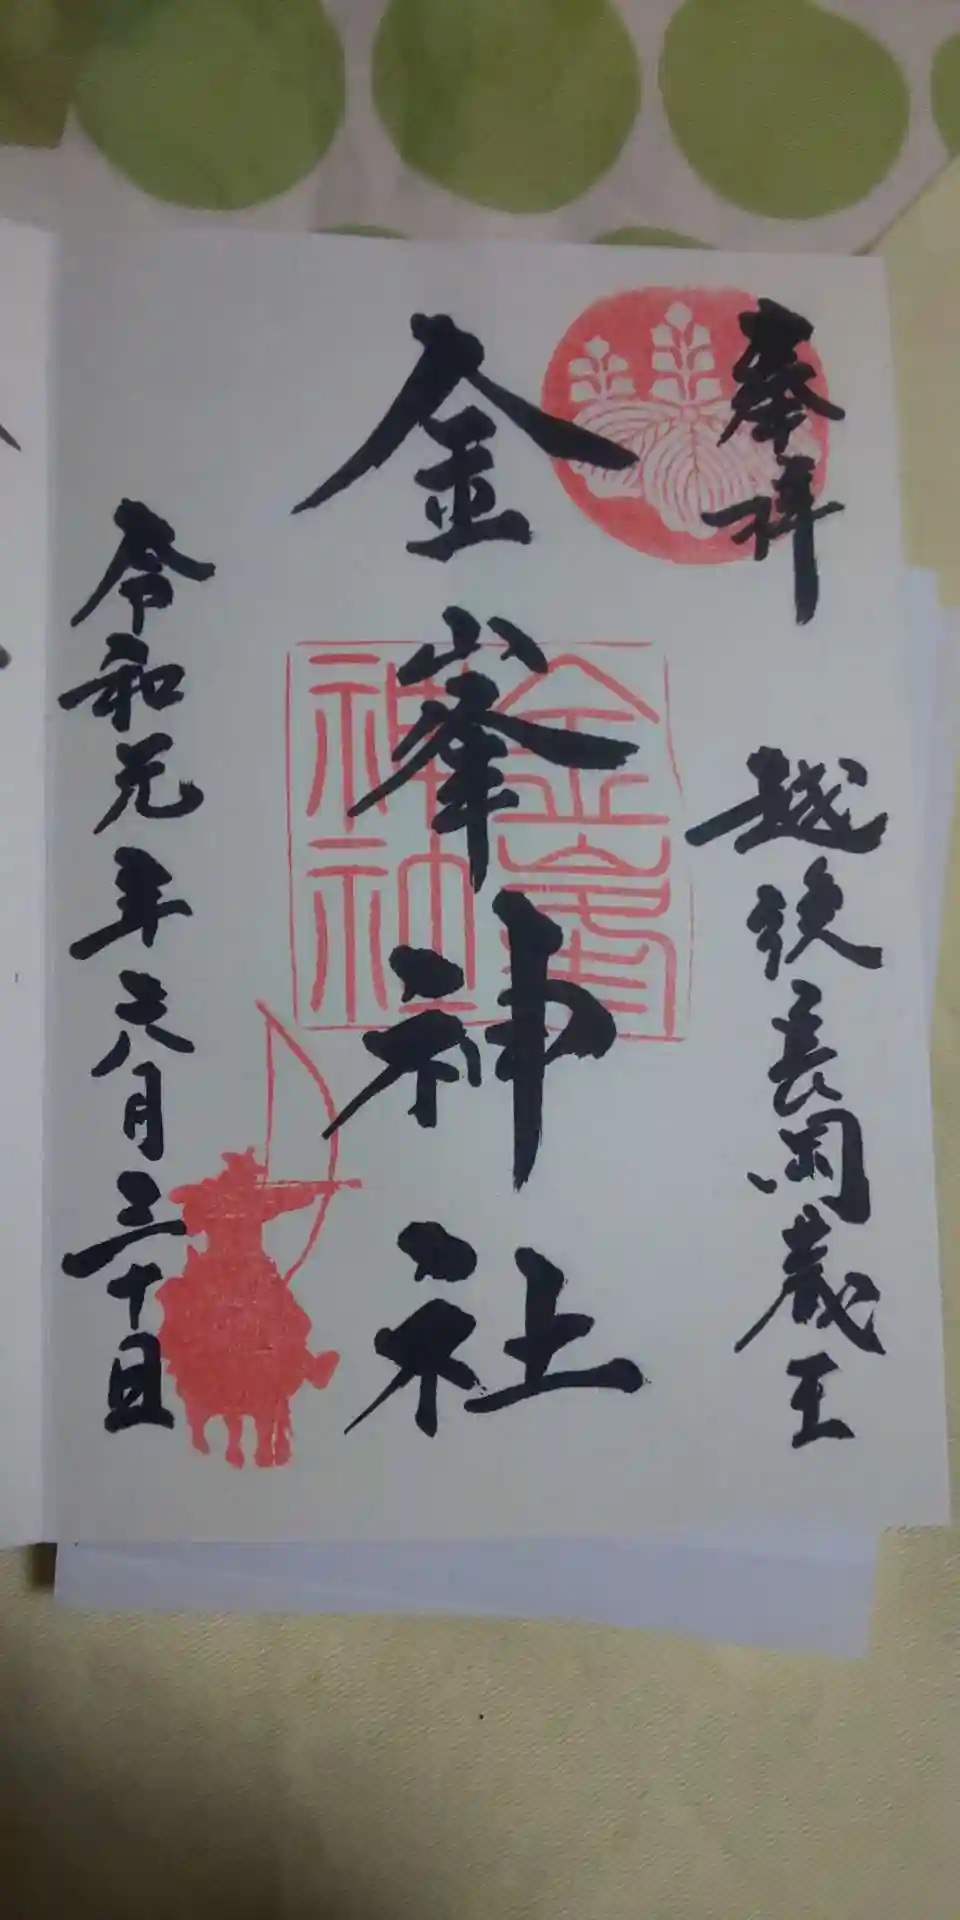 奉拝
越後長岡蔵王
金峯神社
金峯神社
令和元年六月三十日